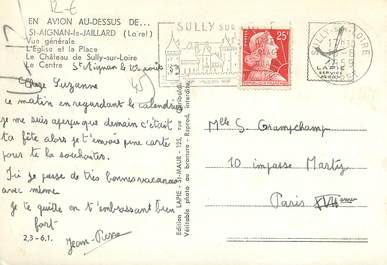 12-E
EN AVION AU-DESSUS DE...
St-AIGNAN-le-JAILLARD (Loiret)
Vue générale
L'Eglise et la Place
Le Château de Sully-sur-Loire
Le Centre St Aignan le 10 août
Chère Suzanne
Ce matin en regardant le calendrier
je me suis aperçu que demain c'était
ta fête alors je t'envoie une carte
pour te la souhaiter.
Ici je passe de très bonnes vacances
avec même
Je te quitte en t'embrassant bien
fort
Jean-Pierre
2,3-6.1.
Edition LAPIE - St-MAUR - 125, rue Garibaldi
Véritable photo au bromure - Reprod. interdite
SULLY SUR
25F
LAPIE
SERVICE
Mlle S. Grampchamp
10 impasse Marty
Paris XVIIème